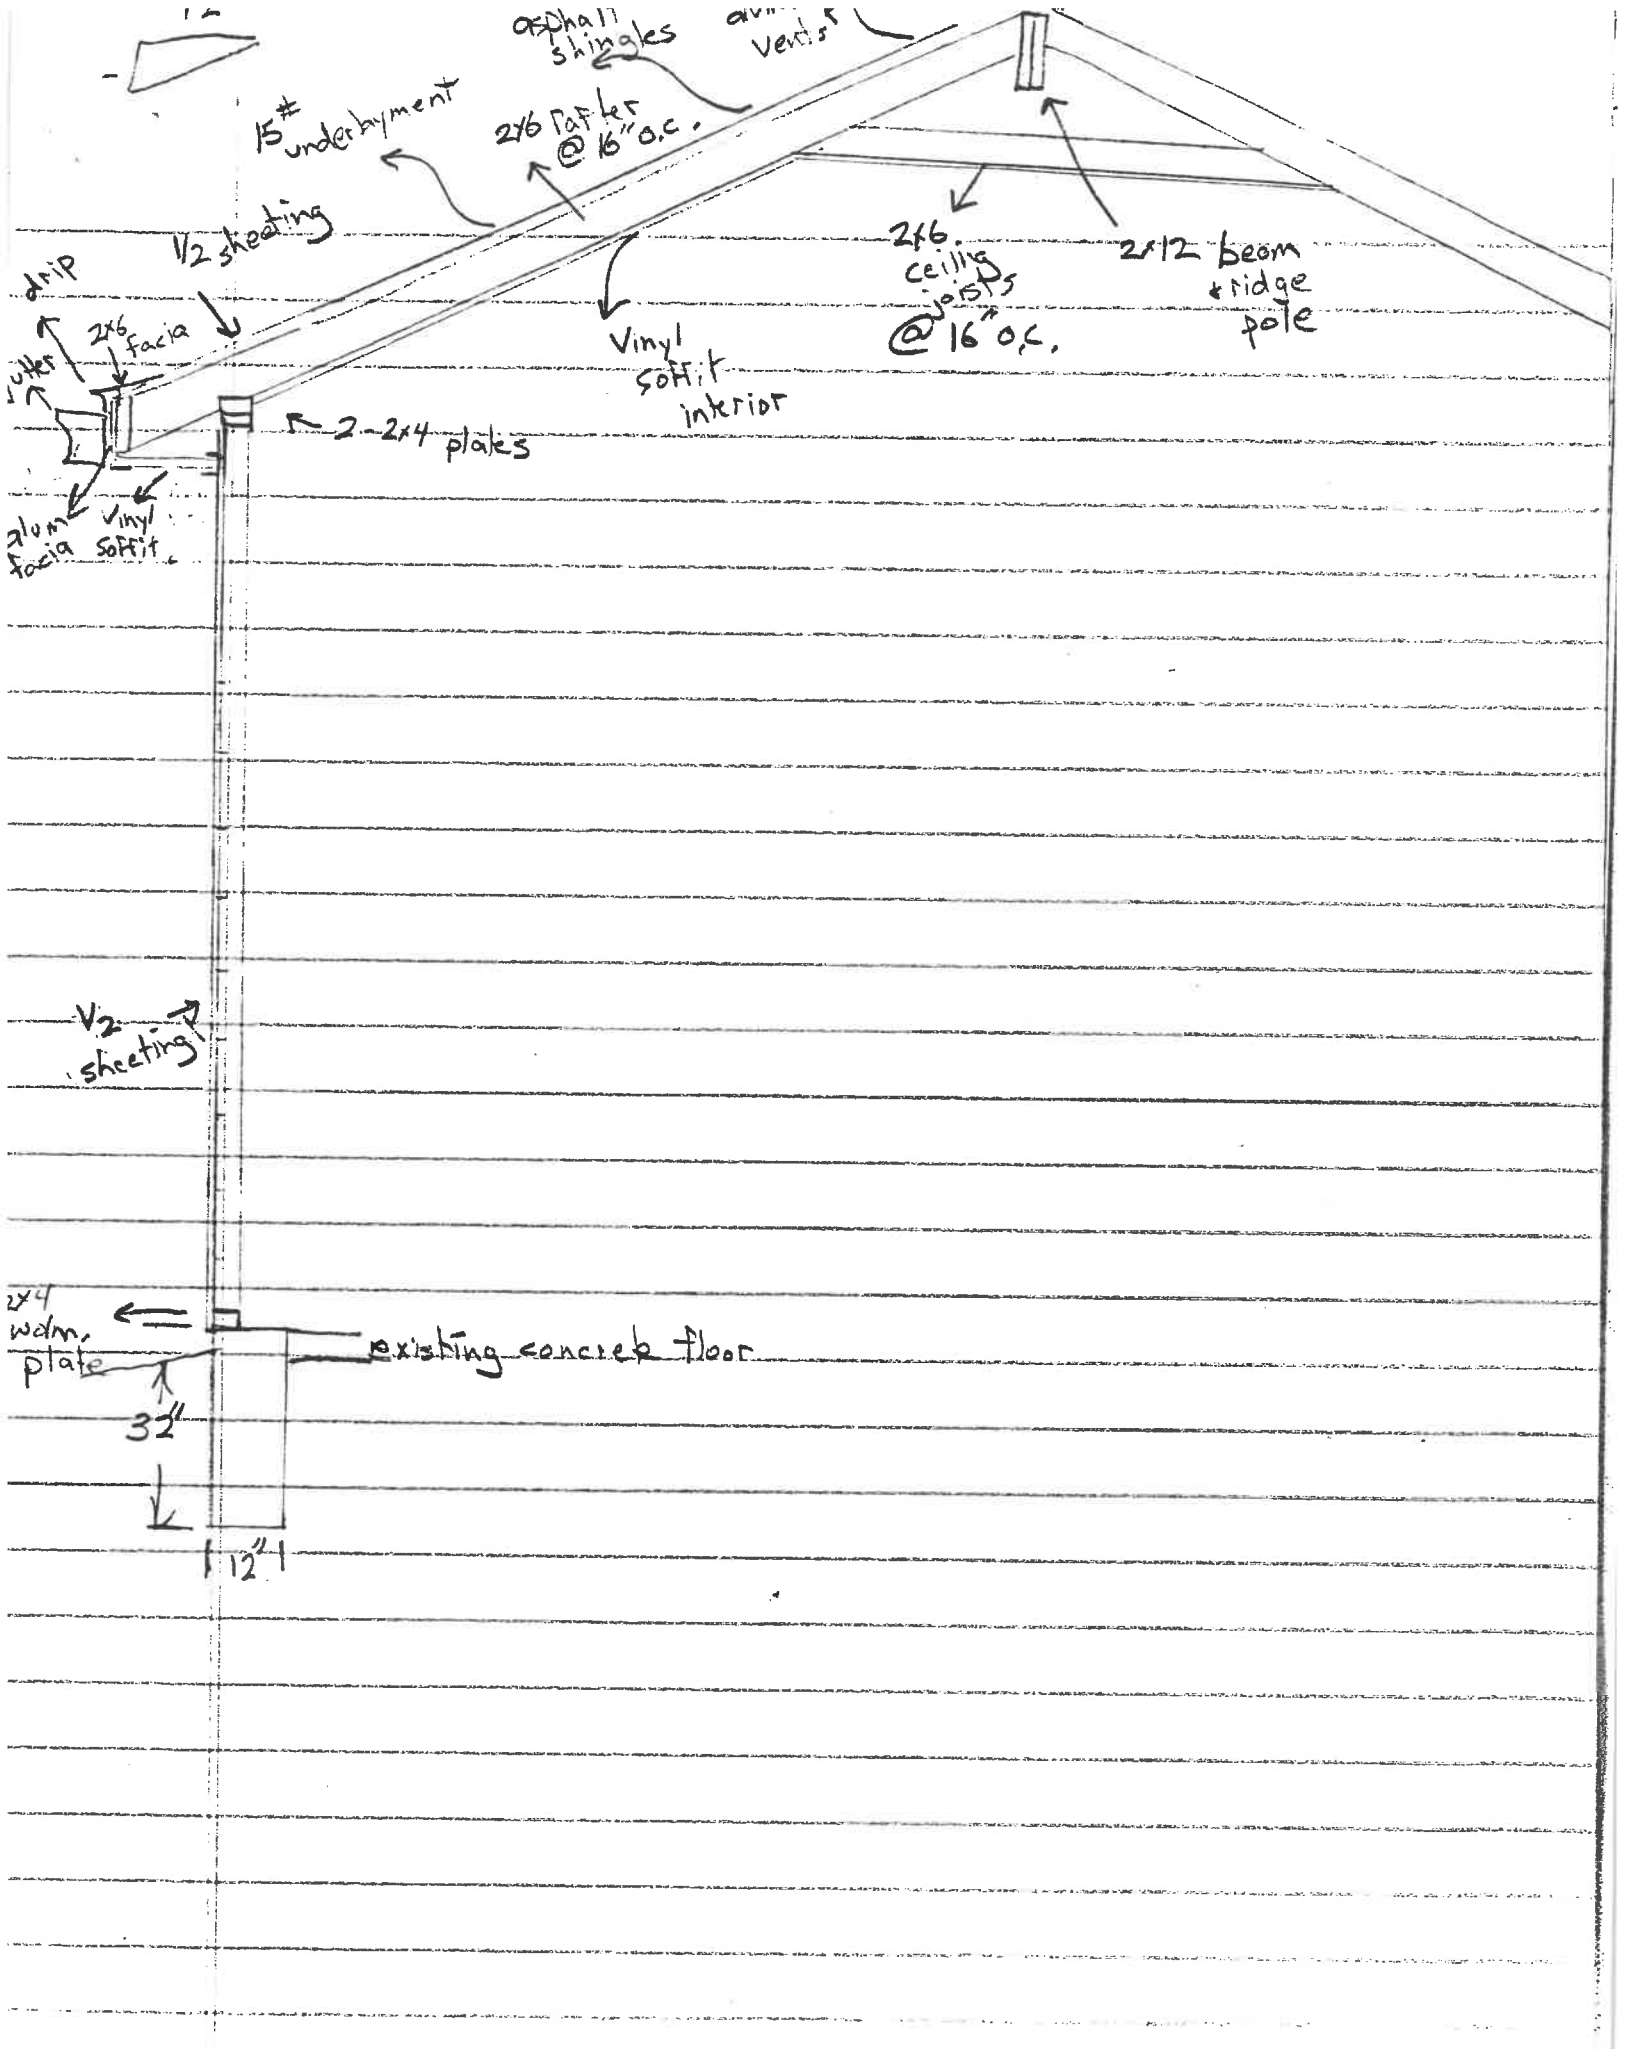 12
asphalt
shingles
vents
15#
underlayment
2x6 rafter
@ 16" o.c.
1/2 sheeting
drip
2x6
facia
2x6.
ceiling
joists
@ 16" o.c.
2x12 beam
+ ridge
pole
Vinyl
soffit
interior
2-2x4 plates
alum
facia
Vinyl
soffit.
1/2
sheeting
2x4
wdm.
plate
existing concrete floor
32"
12"